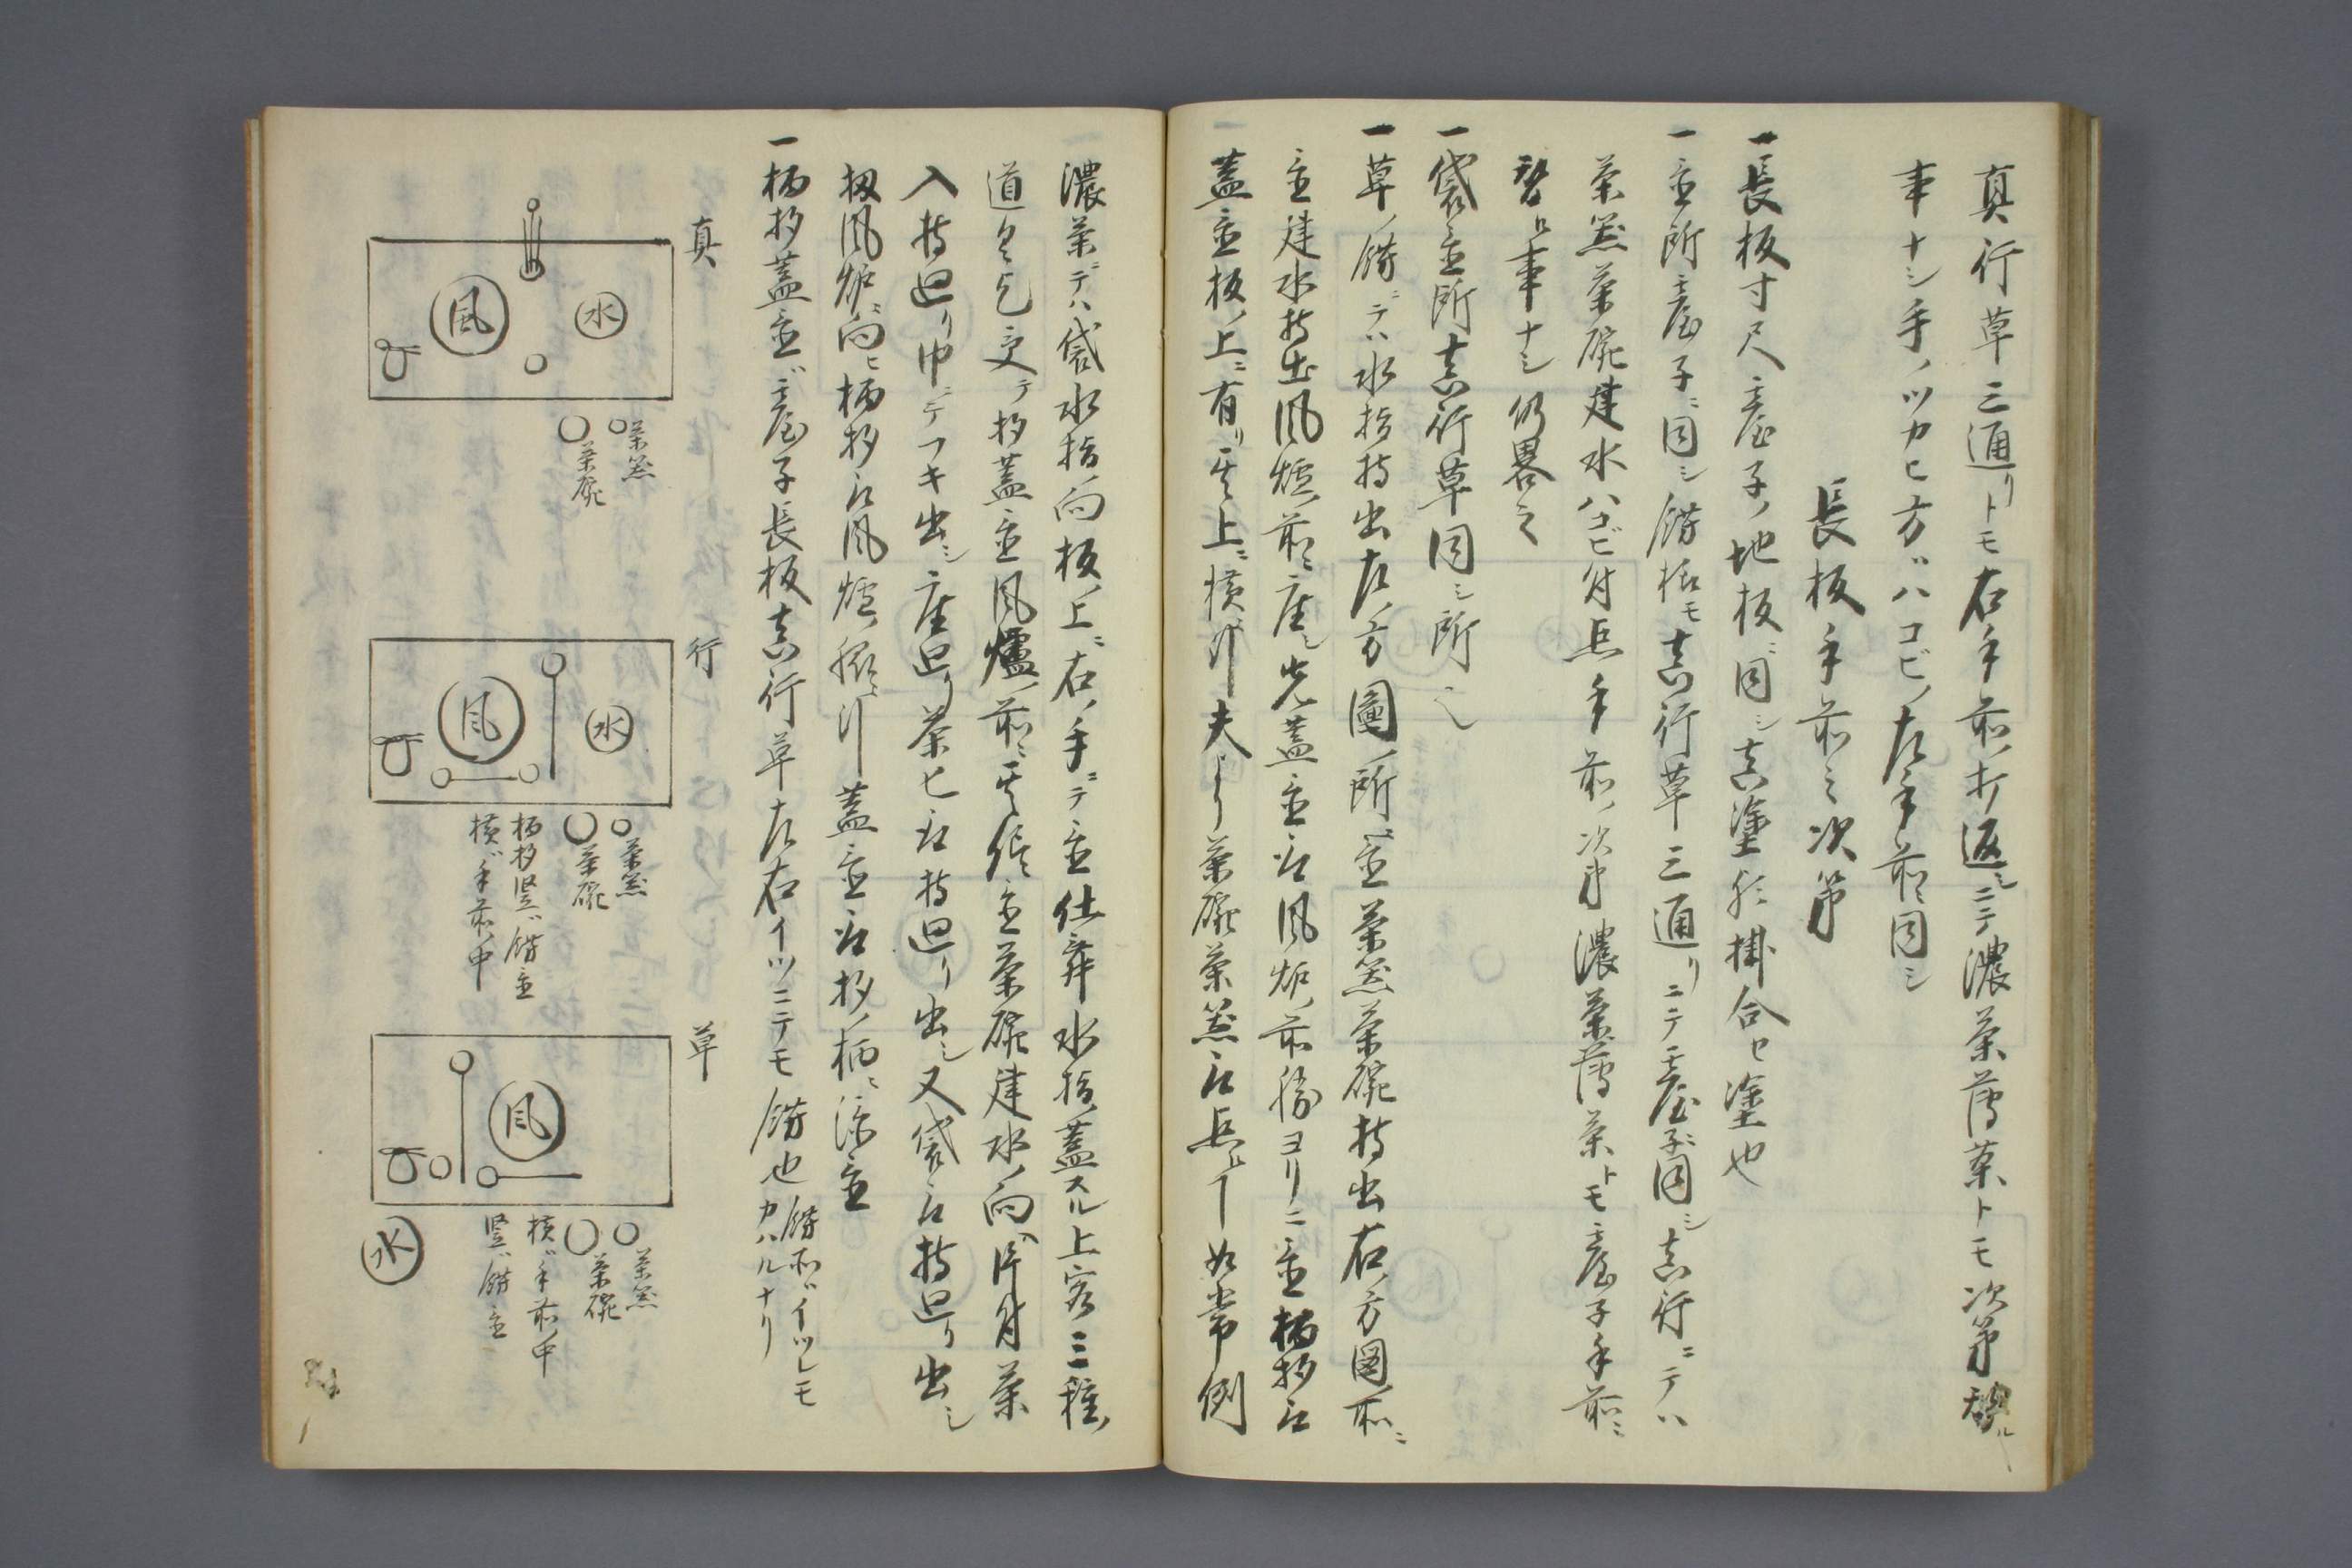 真行草三通リトモ右手前ノ打返シニテ濃茶薄茶トモ次第替ル
事ナシ手ノツカヒ方ガハコビノ左手前ニ同シ
長板手前之次第
一長板寸尺臺子ノ地板ニ同シ真塗形掛合セ塗也
一置所臺子ニ同シ餝様モ真行草三通リニテ臺子ニ同シ真行ニテハ
茶器茶碗建水ハコビ付点手前ノ次第濃茶薄茶トモ臺子手前ニ
替ル事ナシ仍畧之
一袋置所真行草同シ所
一草ノ餝ニテハ水指持出左ノ方圖ノ所ニ置茶器茶碗持出右ノ方図所ニ
置建水持出風爐ノ前ニ座シ先蓋置取風炉ノ前勝ヨリニ置柄杓取
蓋置板ノ上ニ有リ其上ニ横ニ引夫より茶碗茶器取点ル丁如常例
一濃茶ニテハ袋水指ノ向板ノ上ニ右ノ手ニテ置仕舞水指蓋スル上客三種ノ
道具乞受テ杓蓋置風爐ノ前ニ其侭置茶碗建水ノ向ヘ片付茶
入持廻リ巾ニテフキ出シ座廻リ茶匕取持廻リ出シ又袋取持廻リ出シ
扨風炉ニ向ヒ柄杓取風爐ノ縦ニ引蓋置取杓ノ柄ニ添置
一柄杓蓋置ガ臺子長板真行草左右イツニテモ餝也 餝所ガイツレモ
カハルナリ
真
風
水
茶器
茶碗
行
風
水
茶器
茶碗
柄杓竪ガ餝置
横ガ手前ノ中
草
風
茶器
茶碗
横ガ手前ノ中
竪ガ餝置
水